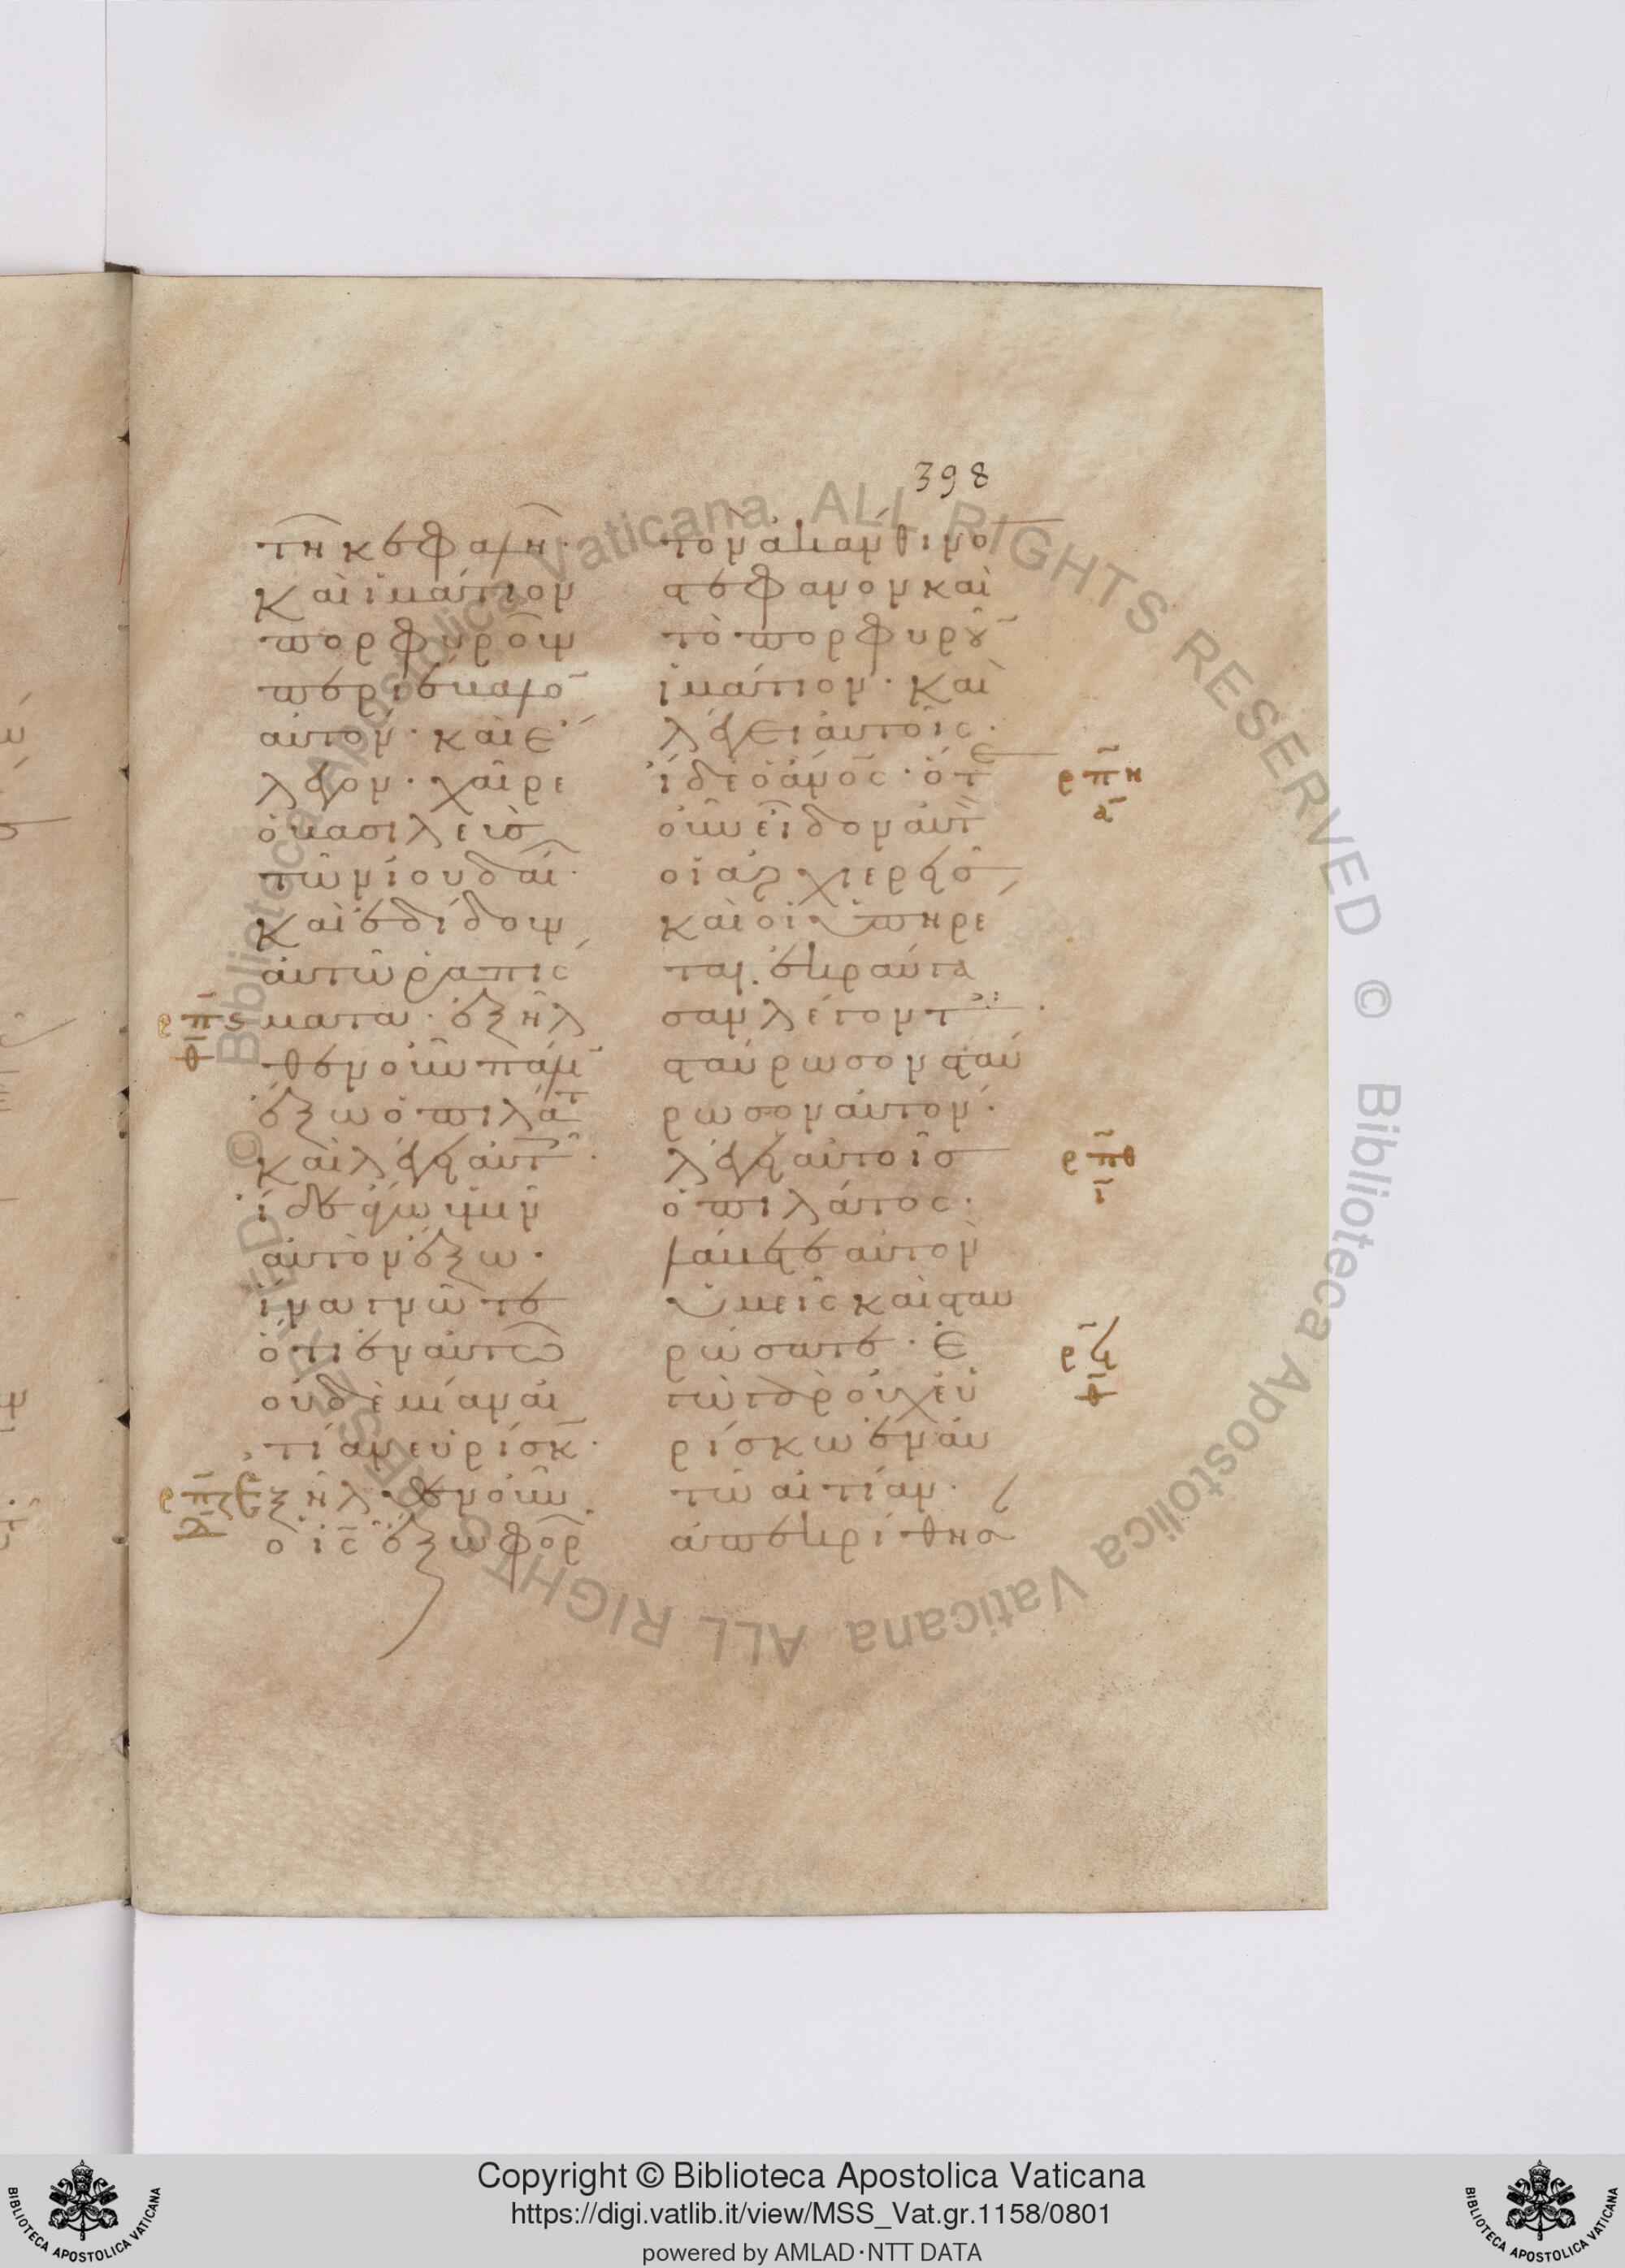 398
τῆ κεφαλῆ·
καὶ ἱμάτιον
πορφυροῦν
περιέβαλο̅
αὐτόν· καὶ ἔ
λεγον· χαῖρε
ὁ βασιλεὺσ
τῶν ἰουδαί·
καὶ ἐδίδουν
αὐτῶ ῥαπίσ
ματα· ἐξῆλ
θεν οὖν πάλι
ἔξω ὁ πιλάτ
καὶ λέγει αὐτ·
ἴδε ἄγω ὑμῖν
αὐτὸν ἔξω·
ἵνα γνῶτε
ὅτι ἐν αὐτῶ
οὐδεμίαν αἰ
τίαν εὑρίσκ·
Ἐξῆλθεν οὖν
ὁ ι̅ς̅ ἔξω φορ
τὸν ἀκάνθινο̅
στέφανον καὶ
τὸ πορφυροῦ̅
ἱμάτιον· καὶ
λέγει αὐτοῖς·
ἴδε ὁ ἄνο̅ς· ὅτε
οὖν εἶδον αὐτ
οἱ ἀρχιερεῖσ
καὶ οἱ ὑπηρέ
ται. ἐκραύγα
σαν λέγοντ·
σταύρωσον σταύ
ρωσον αὐτόν·
λέγει αὐτοῖσ
ὁ πιλάτος·
λάβετε αὐτὸν
ὑμεῖς καὶ σταυ
ρώσατε· ἐ
γὼ γὰρ οὐχ εὑ
ρίσκω ἐν αὐ
τῶ αἰτίαν·
ἀπεκρίθησα
ρπϛ
θ
ρπζ
ρπη
α
ρπθ
ι
ρϟ
θ
BIBLIOTECA APOSTOLICA VATICANA
Copyright © Biblioteca Apostolica Vaticana
https://digi.vatlib.it/view/MSS_Vat.gr.1158/0801
powered by AMLAD·NTT DATA
BIBLIOTECA APOSTOLICA VATICANA
© Biblioteca Apostolica Vaticana ALL RIGHTS RESERVED © Biblioteca Apostolica Vaticana ALL RIGHTS RESERVED